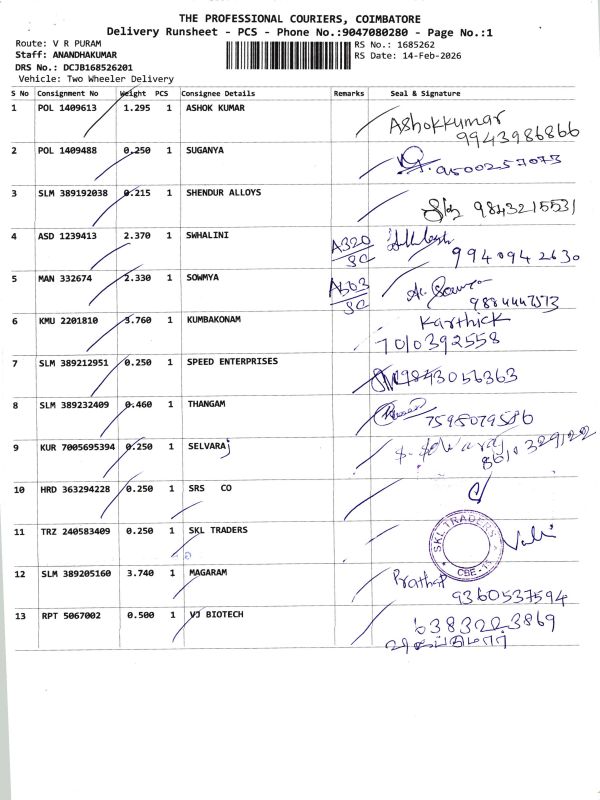 THE PROFESSIONAL COURIERS, COIMBATORE
Delivery Runsheet - PCS - Phone No.:9047080280 - Page No.:1
Route: V R PURAM
Staff: ANANDHAKUMAR
DRS No.: DCJB168526201
Vehicle: Two Wheeler Delivery
RS No.: 1685262
RS Date: 14-Feb-2026
S No Consignment No Weight PCS Consignee Details Remarks Seal & Signature
1 POL 1409613 1.295 1 ASHOK KUMAR Ashokkumar
9943986866
2 POL 1409488 0.250 1 SUGANYA 9500257073
3 SLM 389192038 0.215 1 SHENDUR ALLOYS 9843215531
4 ASD 1239413 2.370 1 SWHALINI A320
SC 9940942630
5 MAN 332674 2.330 1 SOWMYA A303
SC
6 KMU 2201810 3.760 1 KUMBAKONAM Karthick
7010392558
7 SLM 389212951 0.250 1 SPEED ENTERPRISES 9843056363
8 SLM 389232409 0.460 1 THANGAM
9 KUR 7005695394 0.250 1 SELVARAj
10 HRD 363294228 0.250 1 SRS CO
11 TRZ 240583409 0.250 1 SKL TRADERS SKL TRADERS
CBE-11
12 SLM 389205160 3.740 1 MAGARAM Prathap
9360537594
13 RPT 5067002 0.500 1 VJ BIOTECH 6383223869